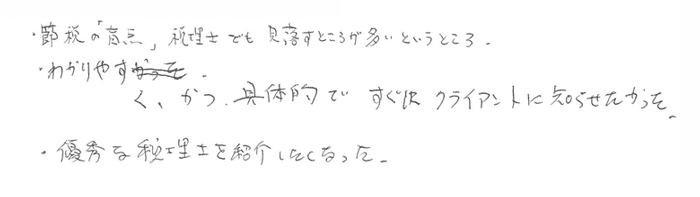 ・節税の「盲点」税理士でも見落すところが多いというところ.
・わかりやす
く、かつ、具体的で すぐに クライアントに知らせたかった.
・優秀な税理士を紹介したくなった.